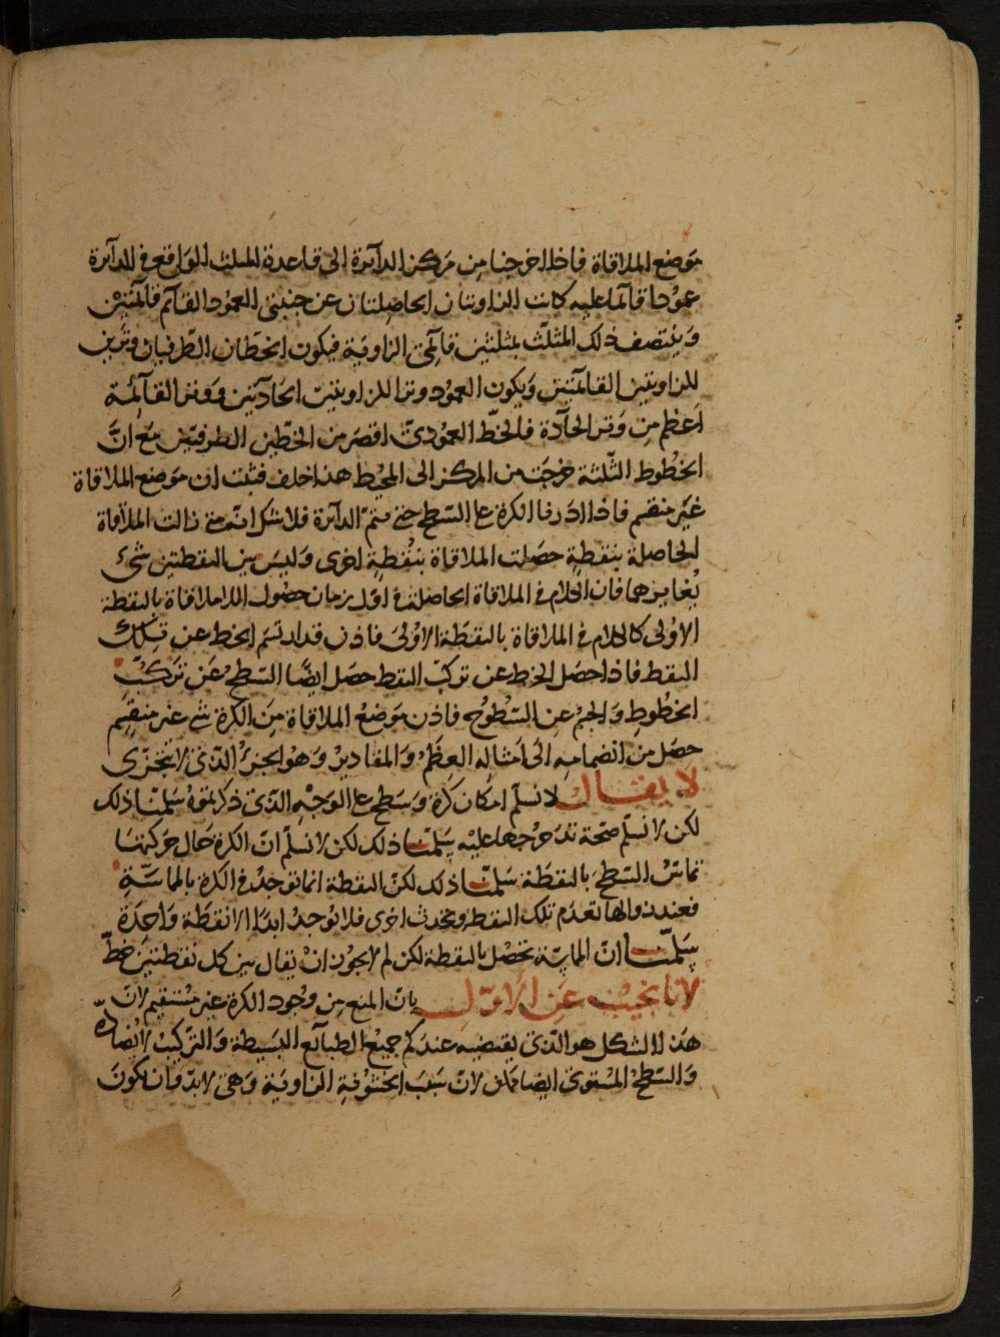 موضع الملاقاة فاذا اخرجنا من مركز الدآئرة الى قاعدة المثلث الواقع فى الدآئرة
عمودا قآئما عليه كانت الزاويتان الحاصلتان عن جنبتى العمود القآئم قآئمتين
وينتصف ذلك المثلث بمثلثين قآئمى الزاوية فيكون الخطان الطرفيان وترين
للزاويتين القآئمتين ويكون العمود وترا للزاويتين الحادّتين ووتر القآئمة
اعظم من وتر الحآدة فالخط العمودىّ اقصر من الخطين الطرفيين مع انّ
الخطوط الثلثة خرجت من المركز الى المحيط هذا خلف فثبت ان موضع الملاقاة
غير منقسم فاذا ادرنا الكرة على السّطح حتى يتم الدآئرة فلا شك انه متى زالت الملاقاة
الحاصلة بنقطةٍ حصلت الملاقاة بنقطةٍ اخرى وليس بين النقطتين شئ
يغايرهما فان الكلام فى الملاقاة الحاصلة فى اول زمان حصول اللاملاقاة بالنقطة
الاولى كالكلام فى الملاقاة بالنقطة الاولى فاذن قد ارتسم الخط عن تلك
النقط فاذا حصل الخط عن تركب النقط حصل ايضًا السّطح عن تركّب
الخطوط والجسم عن السّطوح فاذن موضع الملاقاة من الكرة شئ غير منقسم
حصل من انضمامه الى امثاله العظم والمقادير وهو الجزء الذى لا يتجزى
لا يقال لا نسلّم امكان كرة وسطح على الوجه الذى ذكرتموه سلّمنا ذلك
لكن لا نسلّم صحّة تدحرجها عليه سلّمنا ذلك لكن لا نسلّم انّ الكرة حال حركتها
تماسّ السّطح بالنقطة سلّمنا ذلك لكن النقطة انما توجد فى الكرة بالمماسّة
فعند زوالها تعدم تلك النقطة ويحدث اخرى فلا توجد ابدًا الا نقطة واحدة
سلّمنا انّ المماسّة تحصل بالنقطة لكن لم لا يجوز ان يقال بين كل نقطتين خطّ
لانا نجيب عن الاوّل بان المنع من وجود الكرة غير مستقيم لانّ
هذا الشكل هو الذى يقتضيه عندكم جميع الطبآئع البسيطة والتركيب لا يضادّه
والسّطح المستوى ايضا ممكن لانّ سبب الخشونة الزاوية وهى لابد وان تكون